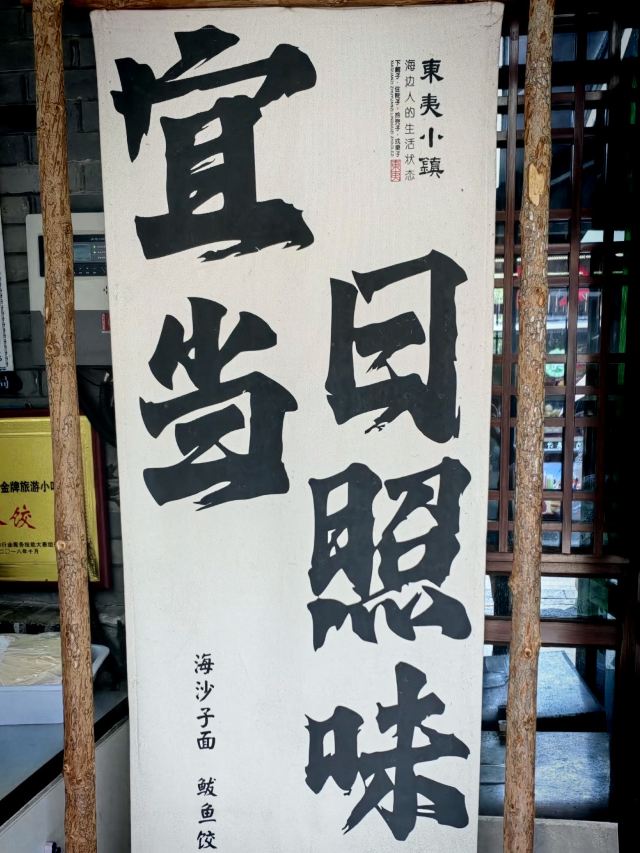 東夷小鎮
海边人的生活状态
日照味
宜当
海沙子面 鲅鱼饺
金牌旅游小吃
饺
二〇一八年十月